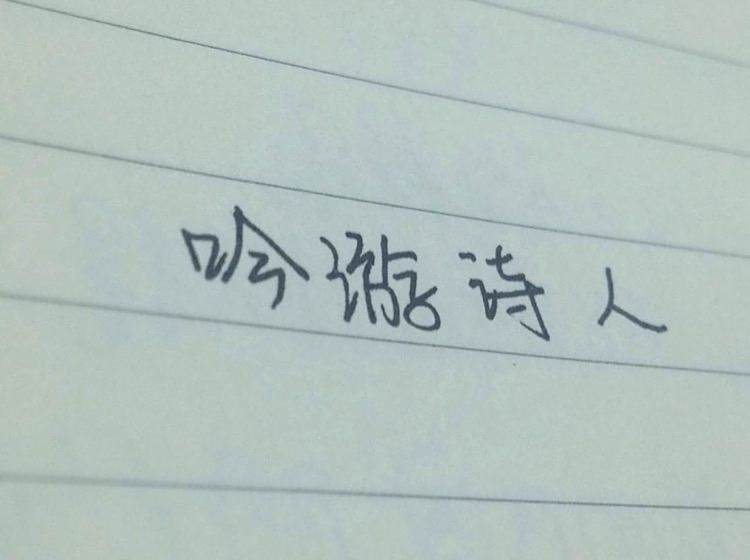 吟游诗人